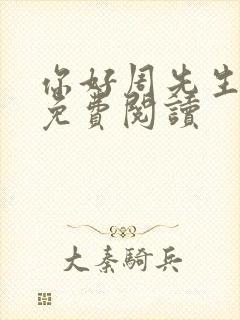 你好周先生
免費閱讀
大秦騎兵